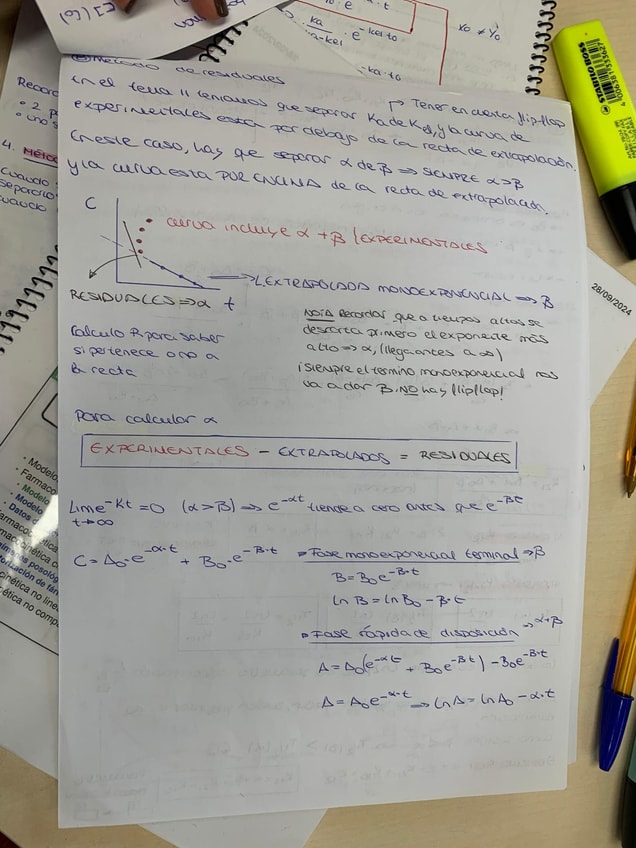 Ka
e
-kel·to
Xo ≠ Yo
-ka·to
STABILO BOSS
28/09/2024
Método de residuales
En el tema 11 teníamos que separar Ka de Kel, y la curva de
→ Tener en cuenta flip-flop
experimentales está por debajo de la recta de extrapolación.
En este caso, hay que separar α de β ⇒ SIEMPRE α>β
y la curva está POR ENCIMA de la recta de extrapolación.
C
curva incluye α + β / EXPERIMENTALES
⇒ EXTRAPOLADA MONOEXPONENCIAL ⇒ β
RESIDUALES ⇒ α
t
Calculo R para saber
si pertenece o no a
la recta
NOTA Recordar que a tiempos altos se
descarta primero el exponente más
alto ⇒ α, (llega antes a ∞)
¡siempre el termino monoexponencial nos
va a dar β. NO hay flipflop!
Para calcular α
EXPERIMENTALES - EXTRAPOLADOS = RESIDUALES
Lim e^-Kt = 0 (α>β) ⇒ e^-αt tiende a cero antes que e^-βt
t→∞
C = A₀·e^-α·t + B₀·e^-β·t
Fase monoexponencial terminal ⇒ β
B = B₀e^-β·t
ln B = ln B₀ - β·t
Fase rápida de disposición ⇒ α+β
A = A₀(e^-αt + B₀e^-βt) - B₀e^-β·t
A = A₀e^-α·t ⇒ ln A = ln A₀ - α·t
Record
4. Método
Cuando
separació
cuando